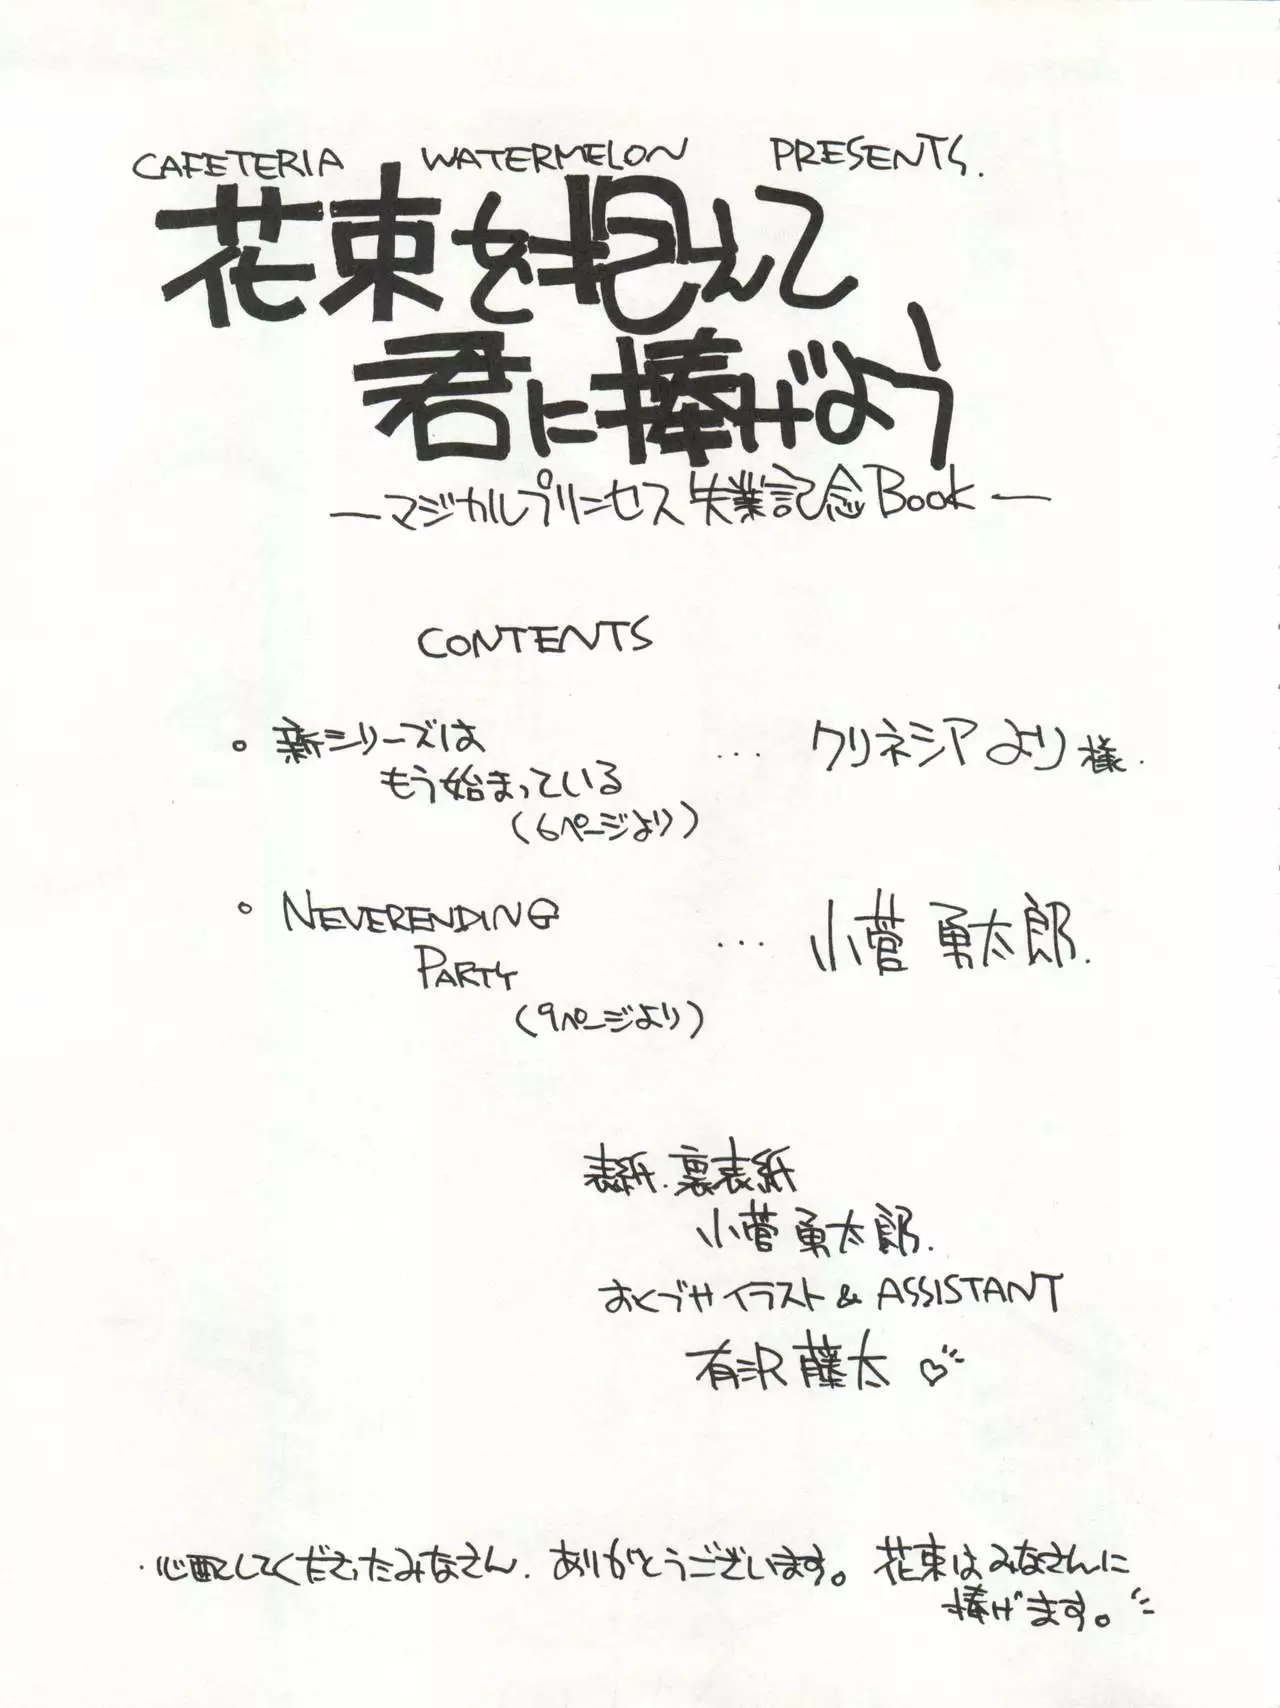 CAFETERIA WATERMELON PRESENTS.
花束を抱えて
君に捧げよう
―マジカルプリンセス失業記念Book―
CONTENTS
・新シリーズは
もう始まっている
(6ページより)
… クリネシアより様.
・NEVERENDING
PARTY
(9ページより)
… 小菅勇太郎.
表紙.裏表紙
小菅勇太郎.
おくづけイラスト&ASSISTANT
有沢藤太♡
・心配してくださったみなさん.ありがとうございます。花束はみなさんに
捧げます。